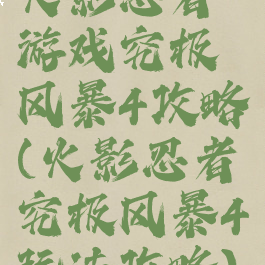 火影忍者
游戏究极
风暴4攻略
(火影忍者
究极风暴4
玩法攻略)